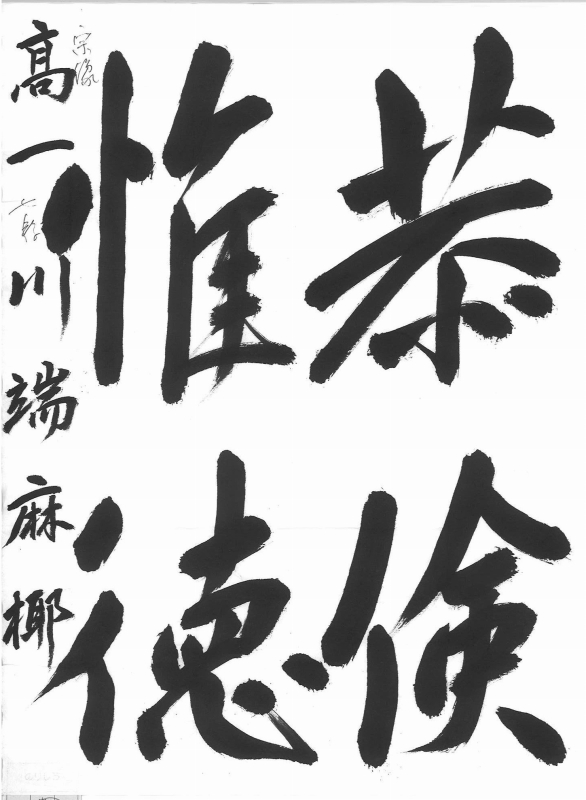 恭倹
惟徳
高一川端麻椰
宗像